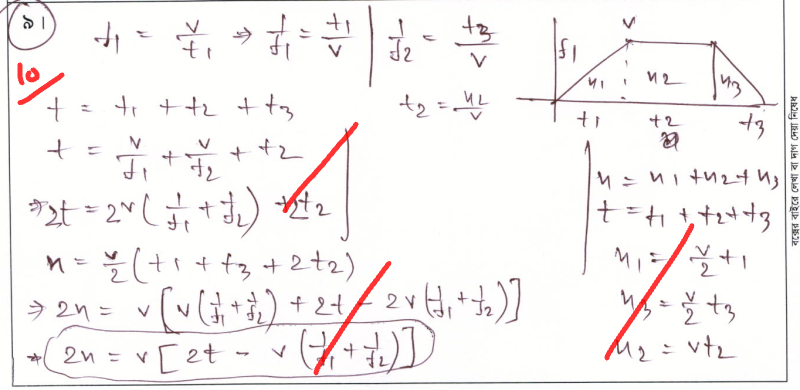 ৯।
f₁ = v/t₁ ⇒ 1/f₁ = t₁/v | 1/f₂ = t₃/v
10
t = t₁ + t₂ + t₃
t₂ = x₂/v
t = v/f₁ + v/f₂ + t₂
⇒ 2t = 2v(1/f₁ + 1/f₂) + 2t₂
x = v/2 (t₁ + t₃ + 2t₂)
⇒ 2x = v[v(1/f₁ + 1/f₂) + 2t - 2v(1/f₁ + 1/f₂)]
⇒ 2x = v[2t - v(1/f₁ + 1/f₂)]
v
f₁
x₁ x₂ x₃
t₁ t₂ t₃
x = x₁ + x₂ + x₃
t = t₁ + t₂ + t₃
x₁ = v/2 t₁
x₃ = v/2 t₃
x₂ = vt₂
বক্সের বাইরে লেখা বা দাগ দেয়া নিষেধ